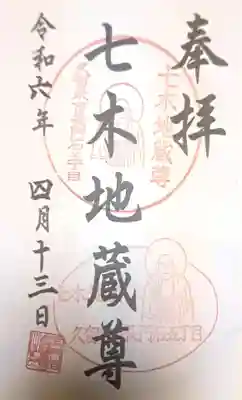 奉拝
七木地蔵尊
令和六年 四月十三日
七木地蔵尊